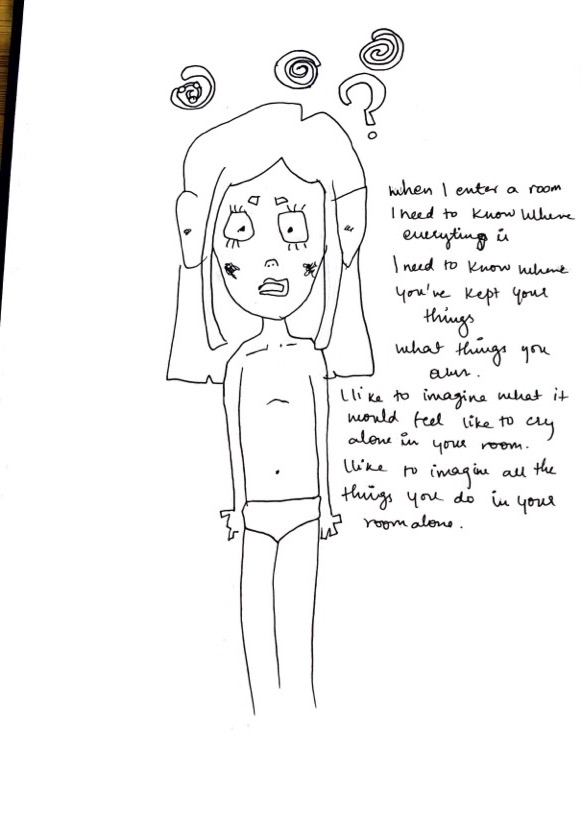 ?
when I enter a room
I need to know where
everyting is
I need to know where
you've kept your
things
what things you
own.
I like to imagine what it
would feel like to cry
alone in your room.
I like to imagine all the
things you do in your
room alone.